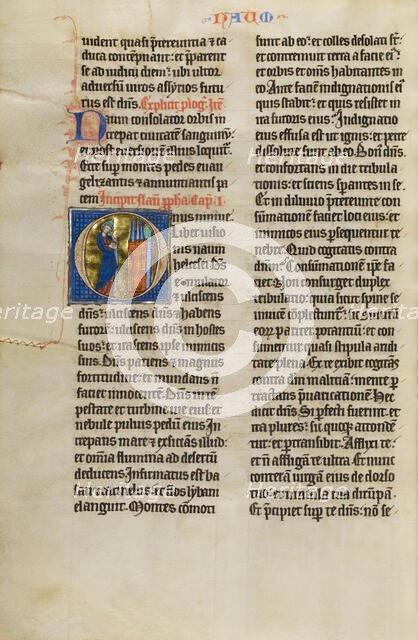 NAUM
uident quasi p̄tereuntia et ca
duca contempnant: et p̄parent
se ad iudicii diem: ubi ultor
aduersū uiros assyrios futu
rus est dn̄s. Explicit plog᷒. Itē
Naum consolator orbis in
crepat ciuitatē sanguinū:
et post euersionē illius loquit᷒.
Ecce sup̄ montes pedes euan
gelizantis et annuntiantis pa
cem Incipit
Onus niniue.
Liber uisio
nis naum
helcesei. Ds̄
emulator
et ulciscens
dn̄s: ulciscens dn̄s et habens
furorē ulciscens dn̄s in hostes
suos: et irascens ipse inimicis
suis. Dn̄s patiens et magnus
fortitudine: et mundans n̄
faciet innocentē. Dn̄s in tem
pestate et turbine uie eius: et
nebule puluis pedum eius. In
crepans mare et exsiccans illud:
et om̄ia flumina ad desertū
deducens. Infirmatus est ba
san et carmelus: et flos lybani
elanguit. Montes cōmoti
sunt ab eo: et colles desolati st̄:
et contremuit terra a facie ei᷒:
et orbis et om̄s habitantes in
eo. Ante faciē indignationis ei᷒
quis stabit: et quis resistet in
ira furoris eius? Indignatio
eius effusa est ut ignis: et petre
dissolute sunt ab eo. Bon᷒ dn̄s
et confortans in die tribula
tionis: et sciens sp̄antes in se.
Et in diluuio p̄tereunte con
sumationē faciet loci eius: et
inimicos eius p̄sequentur te
nebre. Quid cogitatis contra
dn̄m? Consumationē ip̄e faci
et. Non consurget duplex
tribulatio: quia sicut spine se
inuicem
eorū pariter potantiū: et con
sumentur quasi stipula aridi
tate plena. Ex te exibit cogitās
contra dn̄m malitiā: mente p̄
tractans p̄uaricationē. Hec
dicit dn̄s. Si p̄fecti fuerint: et
ita plures: sic quoq; attonde
tur: et p̄transibit. Afflixi te:
et n̄ affligā te ultra. Et nunc
conterā uirgam eius de dorso
tuo: et uincula tua dirūpā.
Et p̄cipiet sup̄ te dn̄s: nō se
Heritage
Heritage
Heritage
Heritage